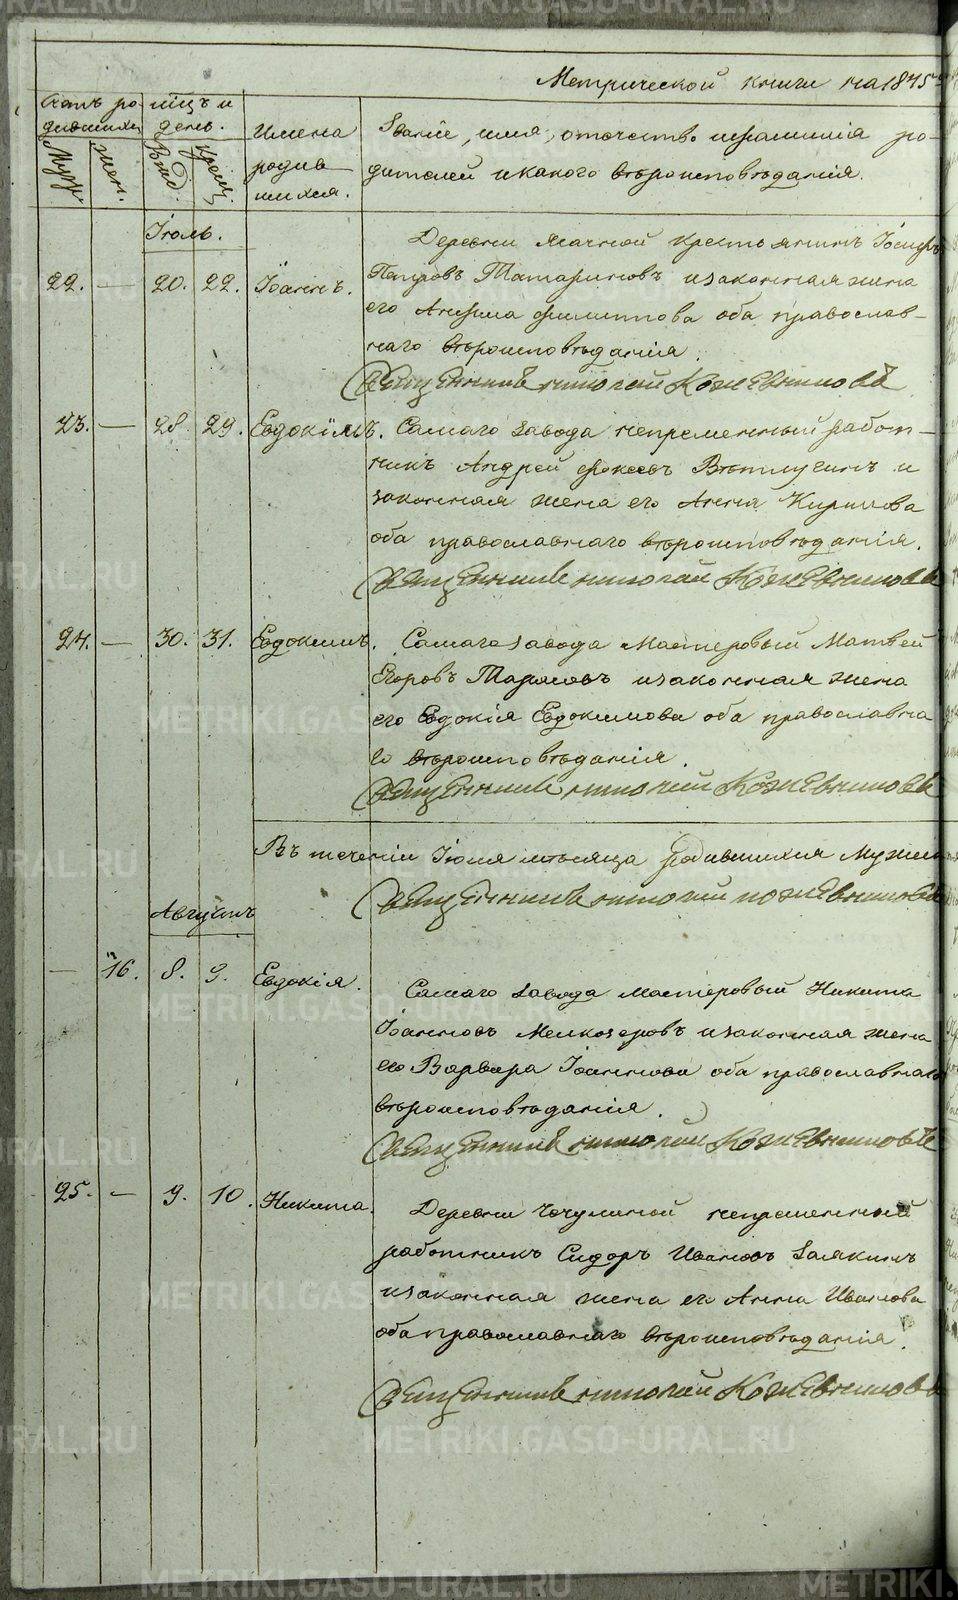 Метрической книги на 1845
Счетъ ро-
дившихся
Муж.
Жен.
мѣцъ и
день.
Рожд.
Крещ.
Имена
родив-
шихся.
Званіе, имя, отечество и фамилія ро-
дителей и какого вѣроисповѣданія.
Іюль.
22. — 20. 22. Іоаннъ.
Деревни крестьянинъ
Петровъ Татариновъ и законная жена
его Филиппова оба православ-
наго вѣроисповѣданія.
Священникъ Николай Кожевниковъ
23. — 28. 29. Евдокімъ. Самаго завода непременный работ-
никъ Андрей Фокеевъ Ветлугинъ и
законная жена его Анна Кирилова
оба православнаго вѣроисповѣданія.
Священникъ Николай Кожевниковъ
24. — 30. 31. Евдокимъ. Самаго завода Мастеровый Матвей
Егоровъ и законная жена
его Евдокія Евдокимова оба православна
го вѣроисповѣданія.
Священникъ Николай Кожевниковъ
Въ теченіи Іюля мѣсяца родившихся Мужес
Священникъ Николай Кожевниковъ
Августъ
— 16. 8. 9. Евдокія. Самаго завода Мастеровый Никита
Іоанновъ Мелкозеровъ и законная жена
его Варвара Іоаннова оба православнаго
вѣроисповѣданія.
Священникъ Николай Кожевниковъ
25. — 9. 10. Никита. Деревни непременный
работникъ Сидоръ Ивановъ Заякинъ
и законная жена его Анна Иванова
оба православнаго вѣроисповѣданія.
Священникъ Николай Кожевниковъ
METRIKI.GASO-URAL.RU